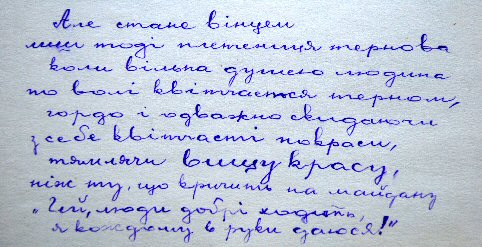 Але стане вінцем
лиш тоді плетениця тернова
коли вільна душею людина
по волі квітчається терном,
гордо і одважно скидаючи
з себе квітчасті покраси,
тямлячи вищу красу,
ніж ту, що кричить на майдану
„Гей, люди добрі ходить,
я кождому в руки даюся!"